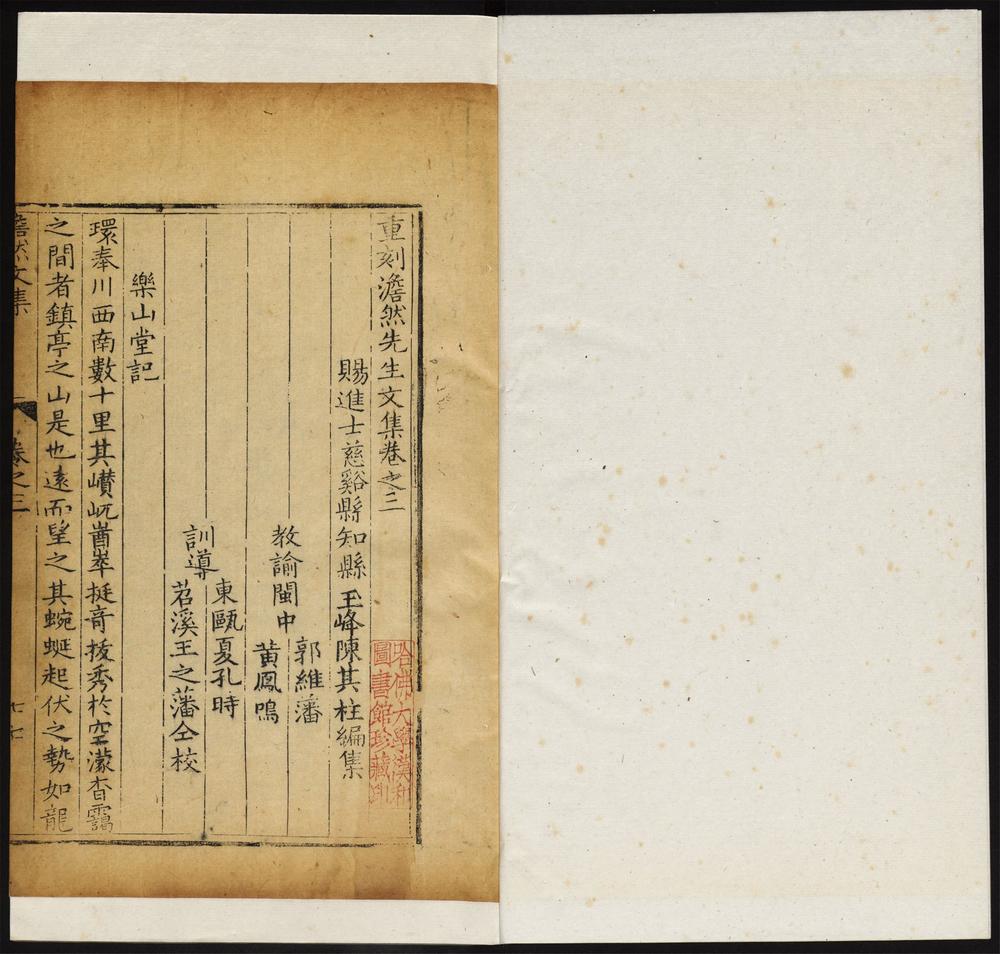 重刻澹然先生文集卷之三
賜進士慈谿縣知縣玉峰陳其柱編集
教諭閩中郭維藩
黃鳳鳴
訓導東甌夏孔時
苕溪王之藩仝校
樂山堂記
環奉川西南數十里其巑屼崷崒挺奇拔秀於空濛杳靄
之間者鎮亭之山是也遠而望之其蜿蜒起伏之勢如龍
澹然文集 卷之三
哈佛大學漢和
圖書館珍藏印